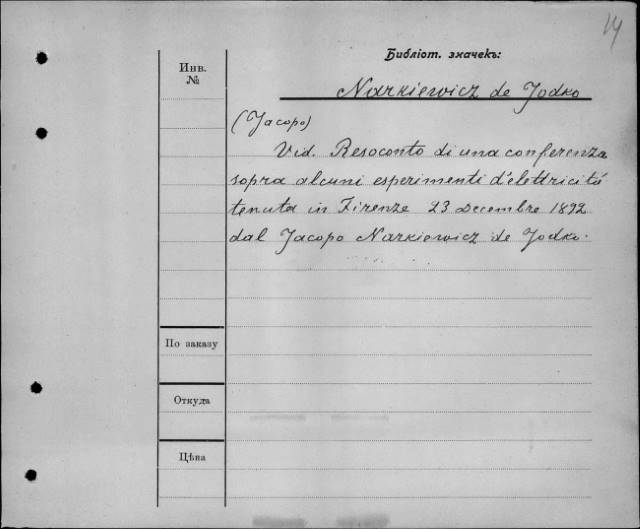 14
Библіот. значекъ:
Инв.
№
Narkiewicz de Jodko
(Jacopo)
Vid. Resoconto di una conferenza
sopra alcuni esperimenti d'elettricitá
tenuta in Firenze 23 Decembre 1892
dal Jacopo Narkiewicz de Jodko.
По заказу
Откуда
Цѣна